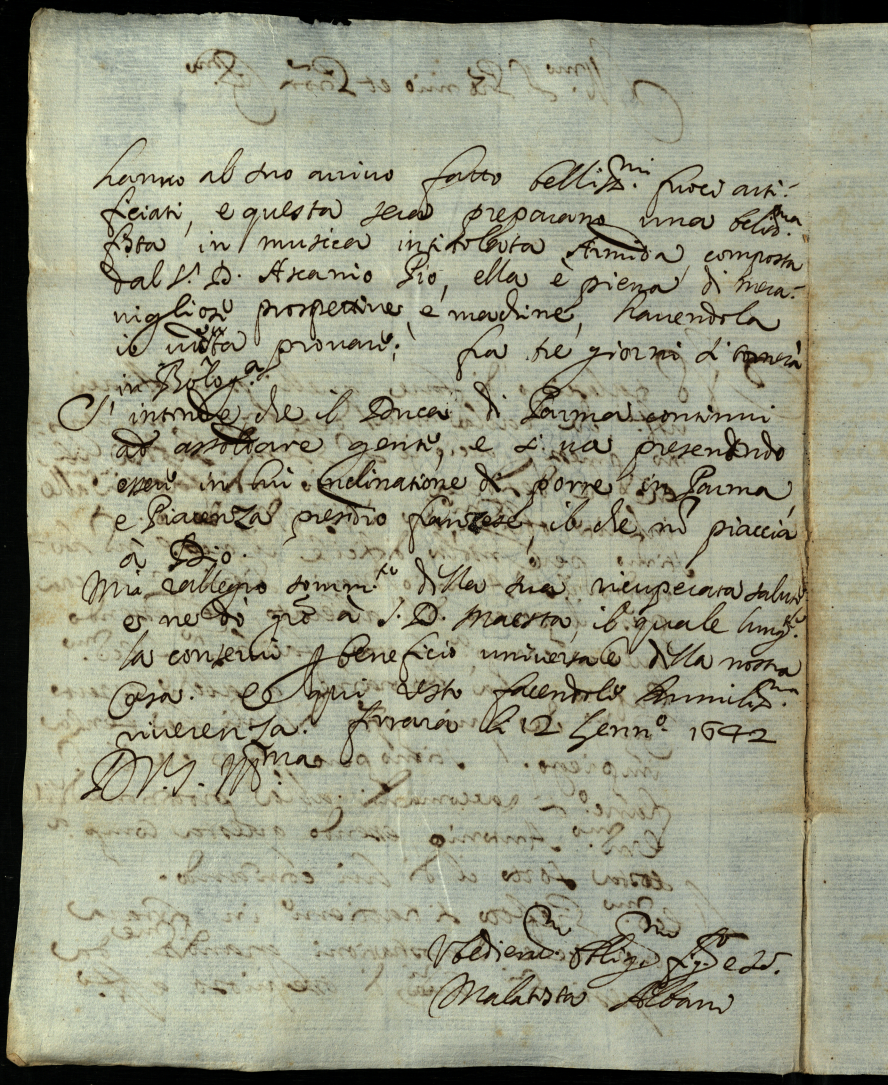 hanno al suo arrivo fatto belliss.mi fuochi arti-
ficiati, e questa sera preparano una beliss.ma
festa in musica intitolata Armida, composta
dal S.r D. Ascanio Pio, ella è piena di mera-
vigliose prospettive, e machine, havendola
io vista provare; fra tre giorni si tornerà
in Bolog.a
S'intende che il Duca di Parma continui
ad assoldare gente, e si va presendendo
essere in lui inclinatione di porre in Parma,
e Piacenza presidio franzese, il che nō piaccia
à Dio.
Mi rallegro somm.te della sua ricuperata salute
e ne dò grē à S. D. Maestà, il quale lung.te
la conservi per beneficio universale della nostra
Casa. E qui resto facendole humiliss.ma
riverenza. Ferrara li 12 Genn.o 1642
D V. S. Ill.ma
Ubedien.mo oblig.mo fig.lo e Ser.
Malatesta Albani